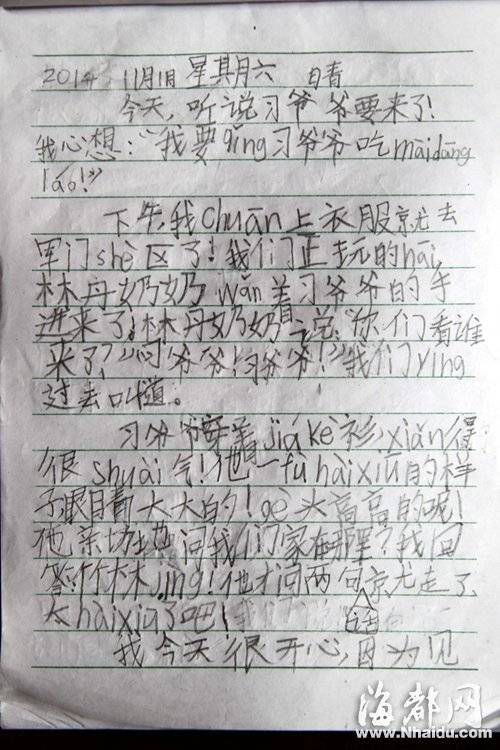 2014 11月1日 星其月六 日青
今天,听说习爷爷要来了!
我心想:“我要qǐng习爷爷吃màidāng
láo!”
下午,我chuān上衣服就去
军门shè区了!我们正玩的hāi,
林丹奶奶wǎn着习爷爷的手
进来了,林丹奶奶说:“你们看谁
来了?”“习爷爷!习爷爷!”我们yíng
过去叫道。
习爷爷穿着jiá kè衫,xiǎn得
很shuài气!他一fù hàixiū的样
子眼睛大大的!gè头高高的呢!
他亲切地问我们家在哪里?我回
答:竹林jìng!他才问两句就走了
太hàixiū了吧! 话
我今天很开心,因为见
海都网
www.Nhaidu.com